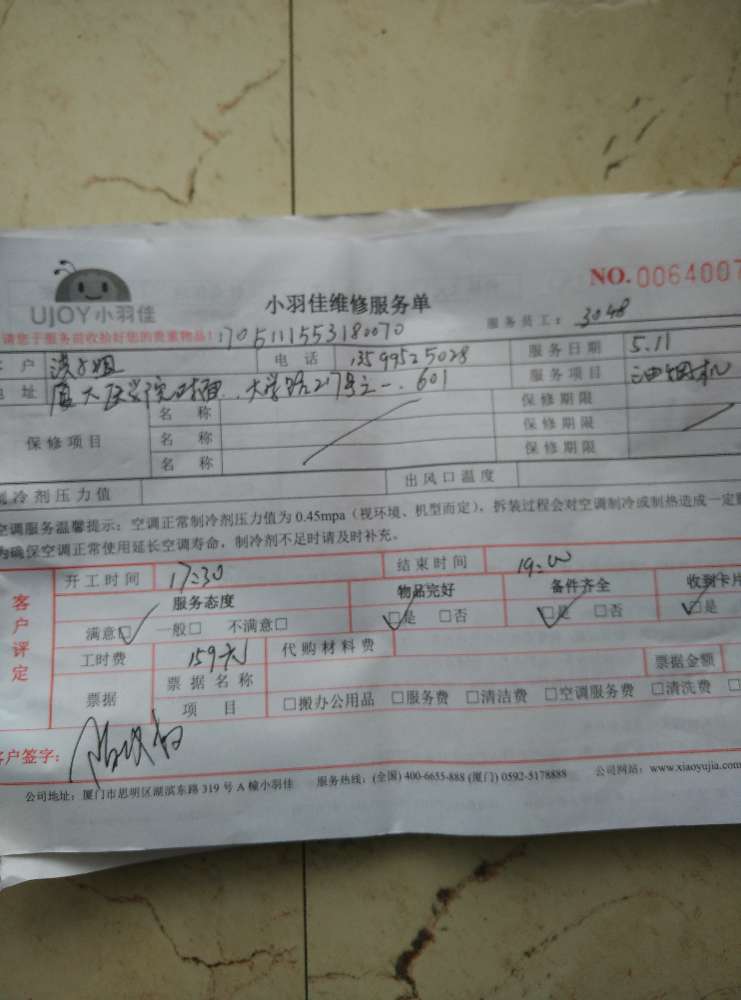 UJOY小羽佳
小羽佳维修服务单
NO. 0064007
请您于服务前收拾好您的贵重物品! 1705111553180070
服务员工: 3048
户 小姐 电话 13599525028 服务日期 5.11
地址 厦大医学院 大学路217号之一. 601 服务项目 油烟机
保修项目 名称 保修期限
名称 保修期限
名称 保修期限
冷剂压力值 出风口温度
空调服务温馨提示: 空调正常制冷剂压力值为 0.45mpa (视环境、机型而定), 拆装过程会对空调制冷或制热造成一定
为确保空调正常使用延长空调寿命, 制冷剂不足时请及时补充。
客户评定
开工时间 17:30 结束时间 19:00
服务态度 物品完好 备件齐全 收到卡片
满意☑ 一般□ 不满意□ ☑是 □否 ☑是 □否 ☑是
工时费 159元 代购材料费
票据 票据名称 票据金额
项目 □搬办公用品 □服务费 □清洁费 □空调服务费 □清洗费 □
客户签字:
公司地址: 厦门市思明区湖滨东路 319 号 A 幢小羽佳 服务热线: (全国) 400-6655-888 (厦门) 0592-5178888 公司网站: www.xiaoyujia.com